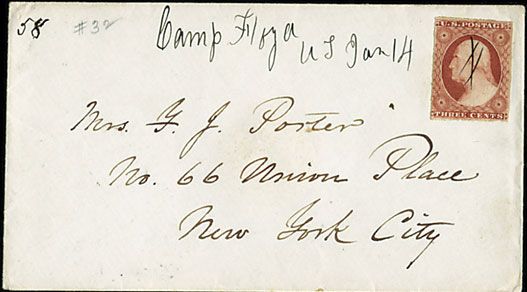 58 #32 Camp Floyd UT Jan 14
U.S. POSTAGE
THREE CENTS
Mrs. F. J. Porter
No. 66 Union Place
New York City